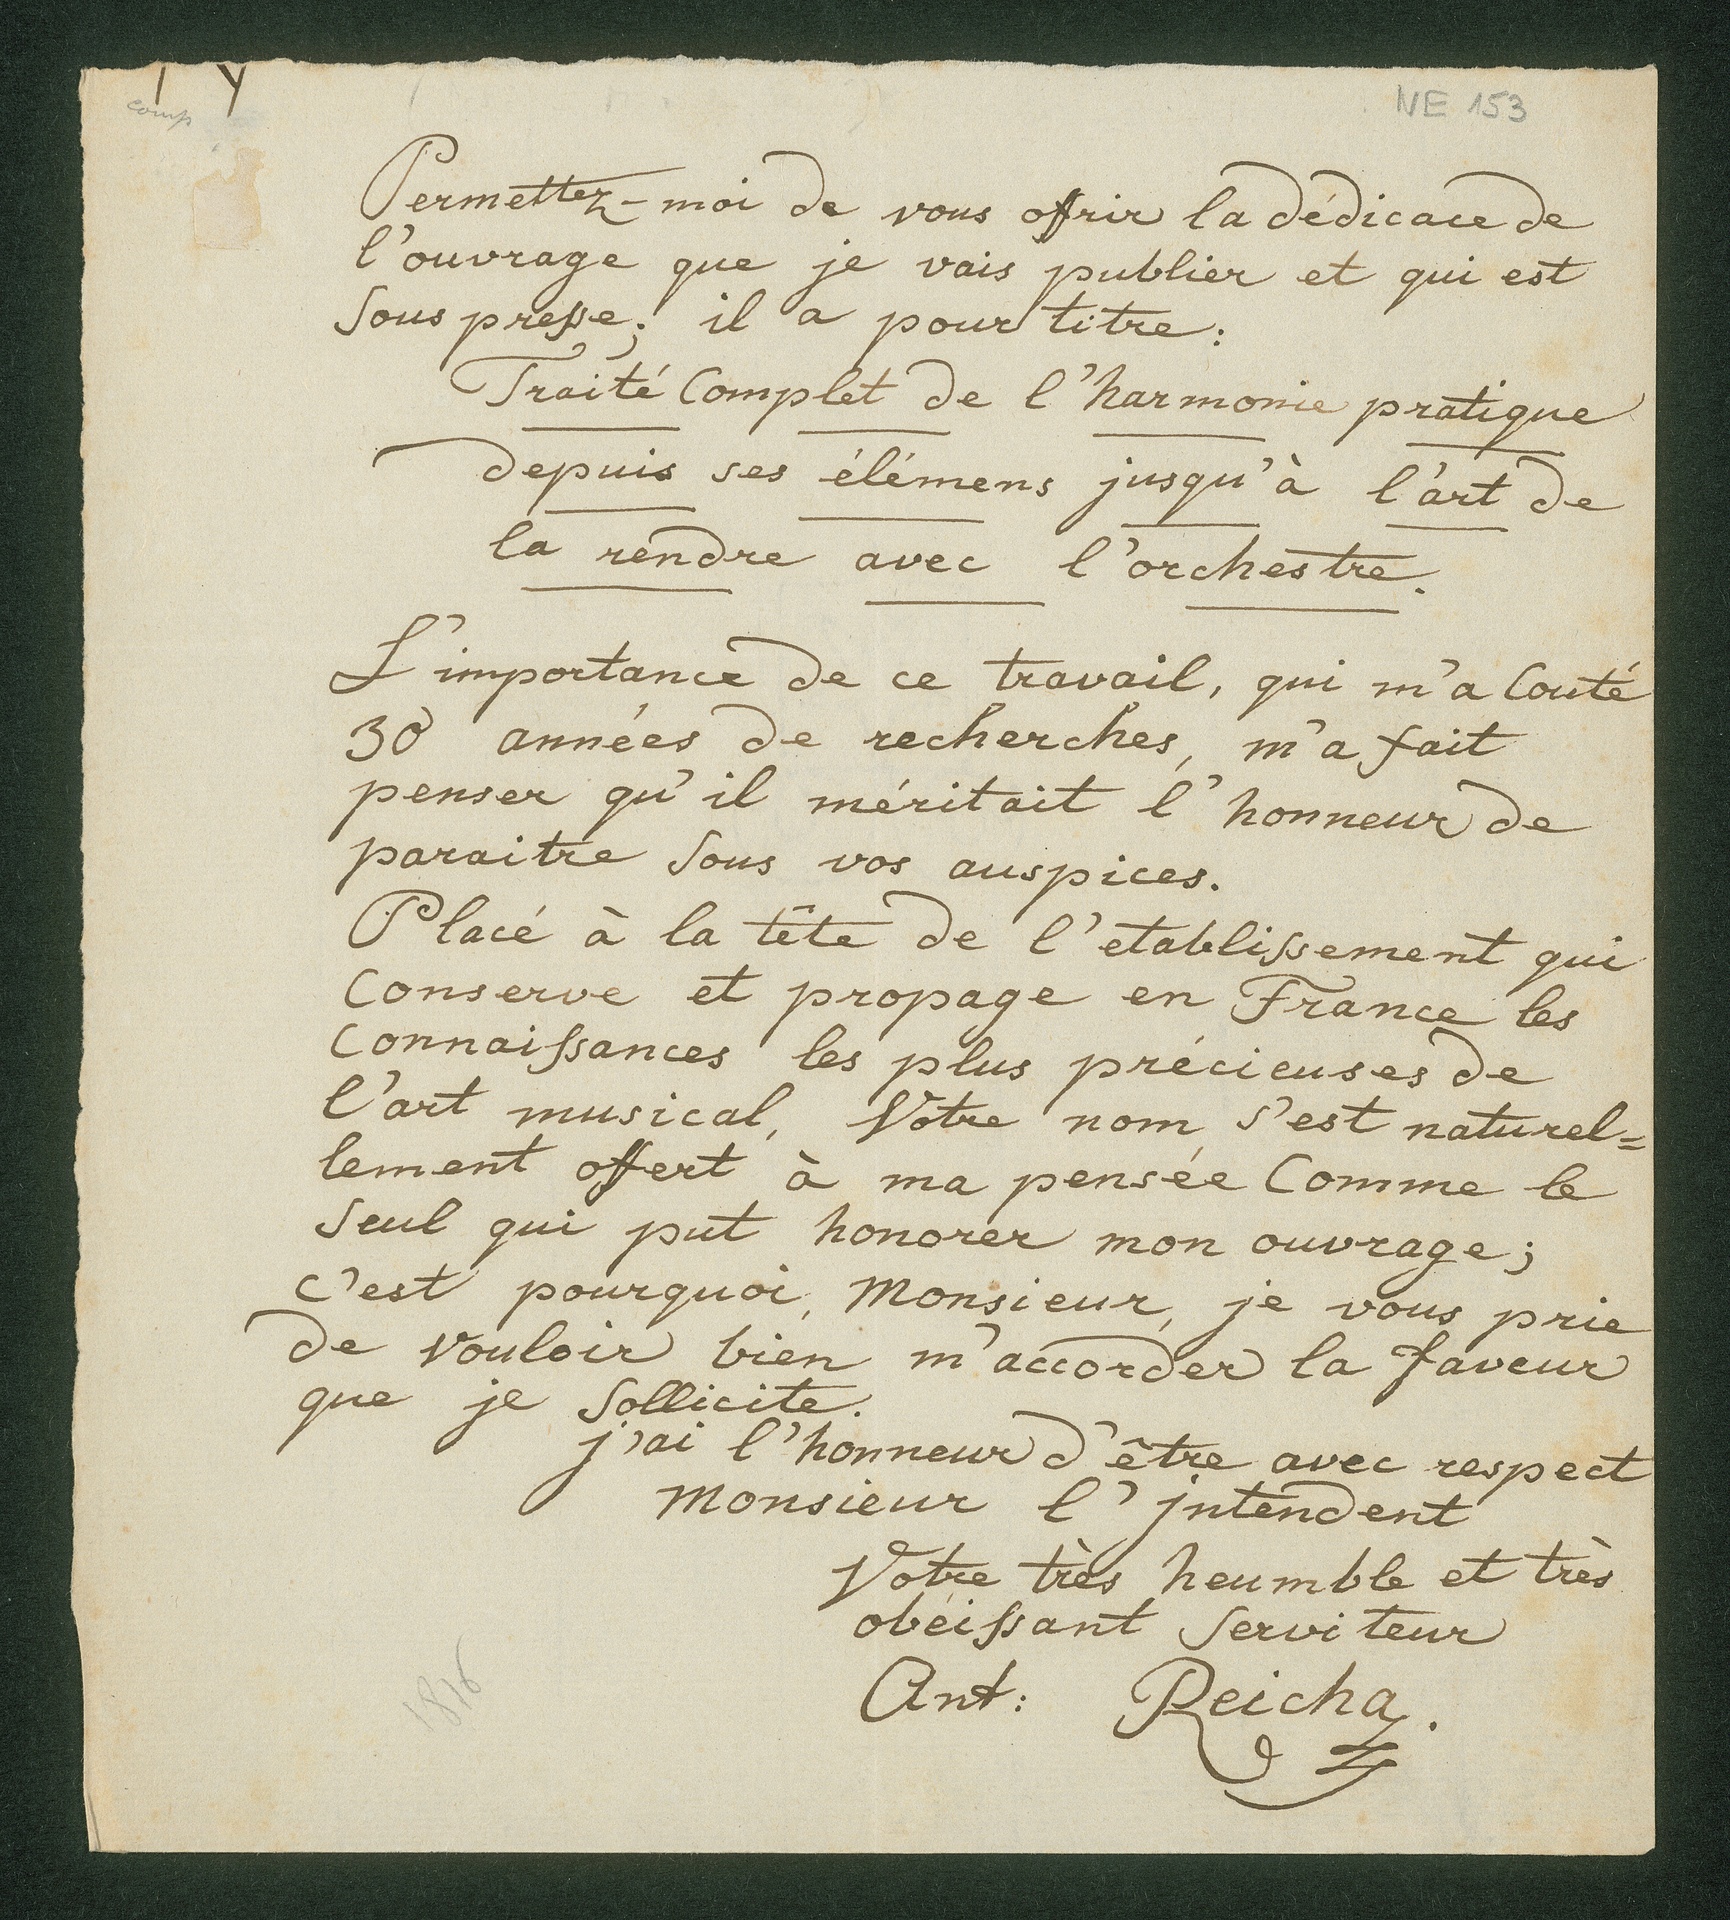 comp
NE 153
Permettez-moi de vous offrir la dédicace de
l'ouvrage que je vais publier et qui est
sous presse; il a pour titre:
Traité Complet de l'harmonie pratique
depuis ses élémens jusqu'à l'art de
la rendre avec l'orchestre.
L'importance de ce travail, qui m'a Couté
30 années de recherches, m'a fait
penser qu'il méritait l'honneur de
paraitre sous vos auspices.
Placé à la tête de l'etablissement qui
Conserve et propage en France les
Connaissances les plus précieuses de
l'art musical, Votre nom s'est naturel=
lement offert à ma pensée Comme le
seul qui put honorer mon ouvrage;
c'est pourquoi, Monsieur, je vous prie
de vouloir bien m'accorder la faveur
que je sollicite.
j'ai l'honneur d'être avec respect
Monsieur l'jntendent
Votre très heumble et très
obéissant serviteur
Ant: Reicha.
1816